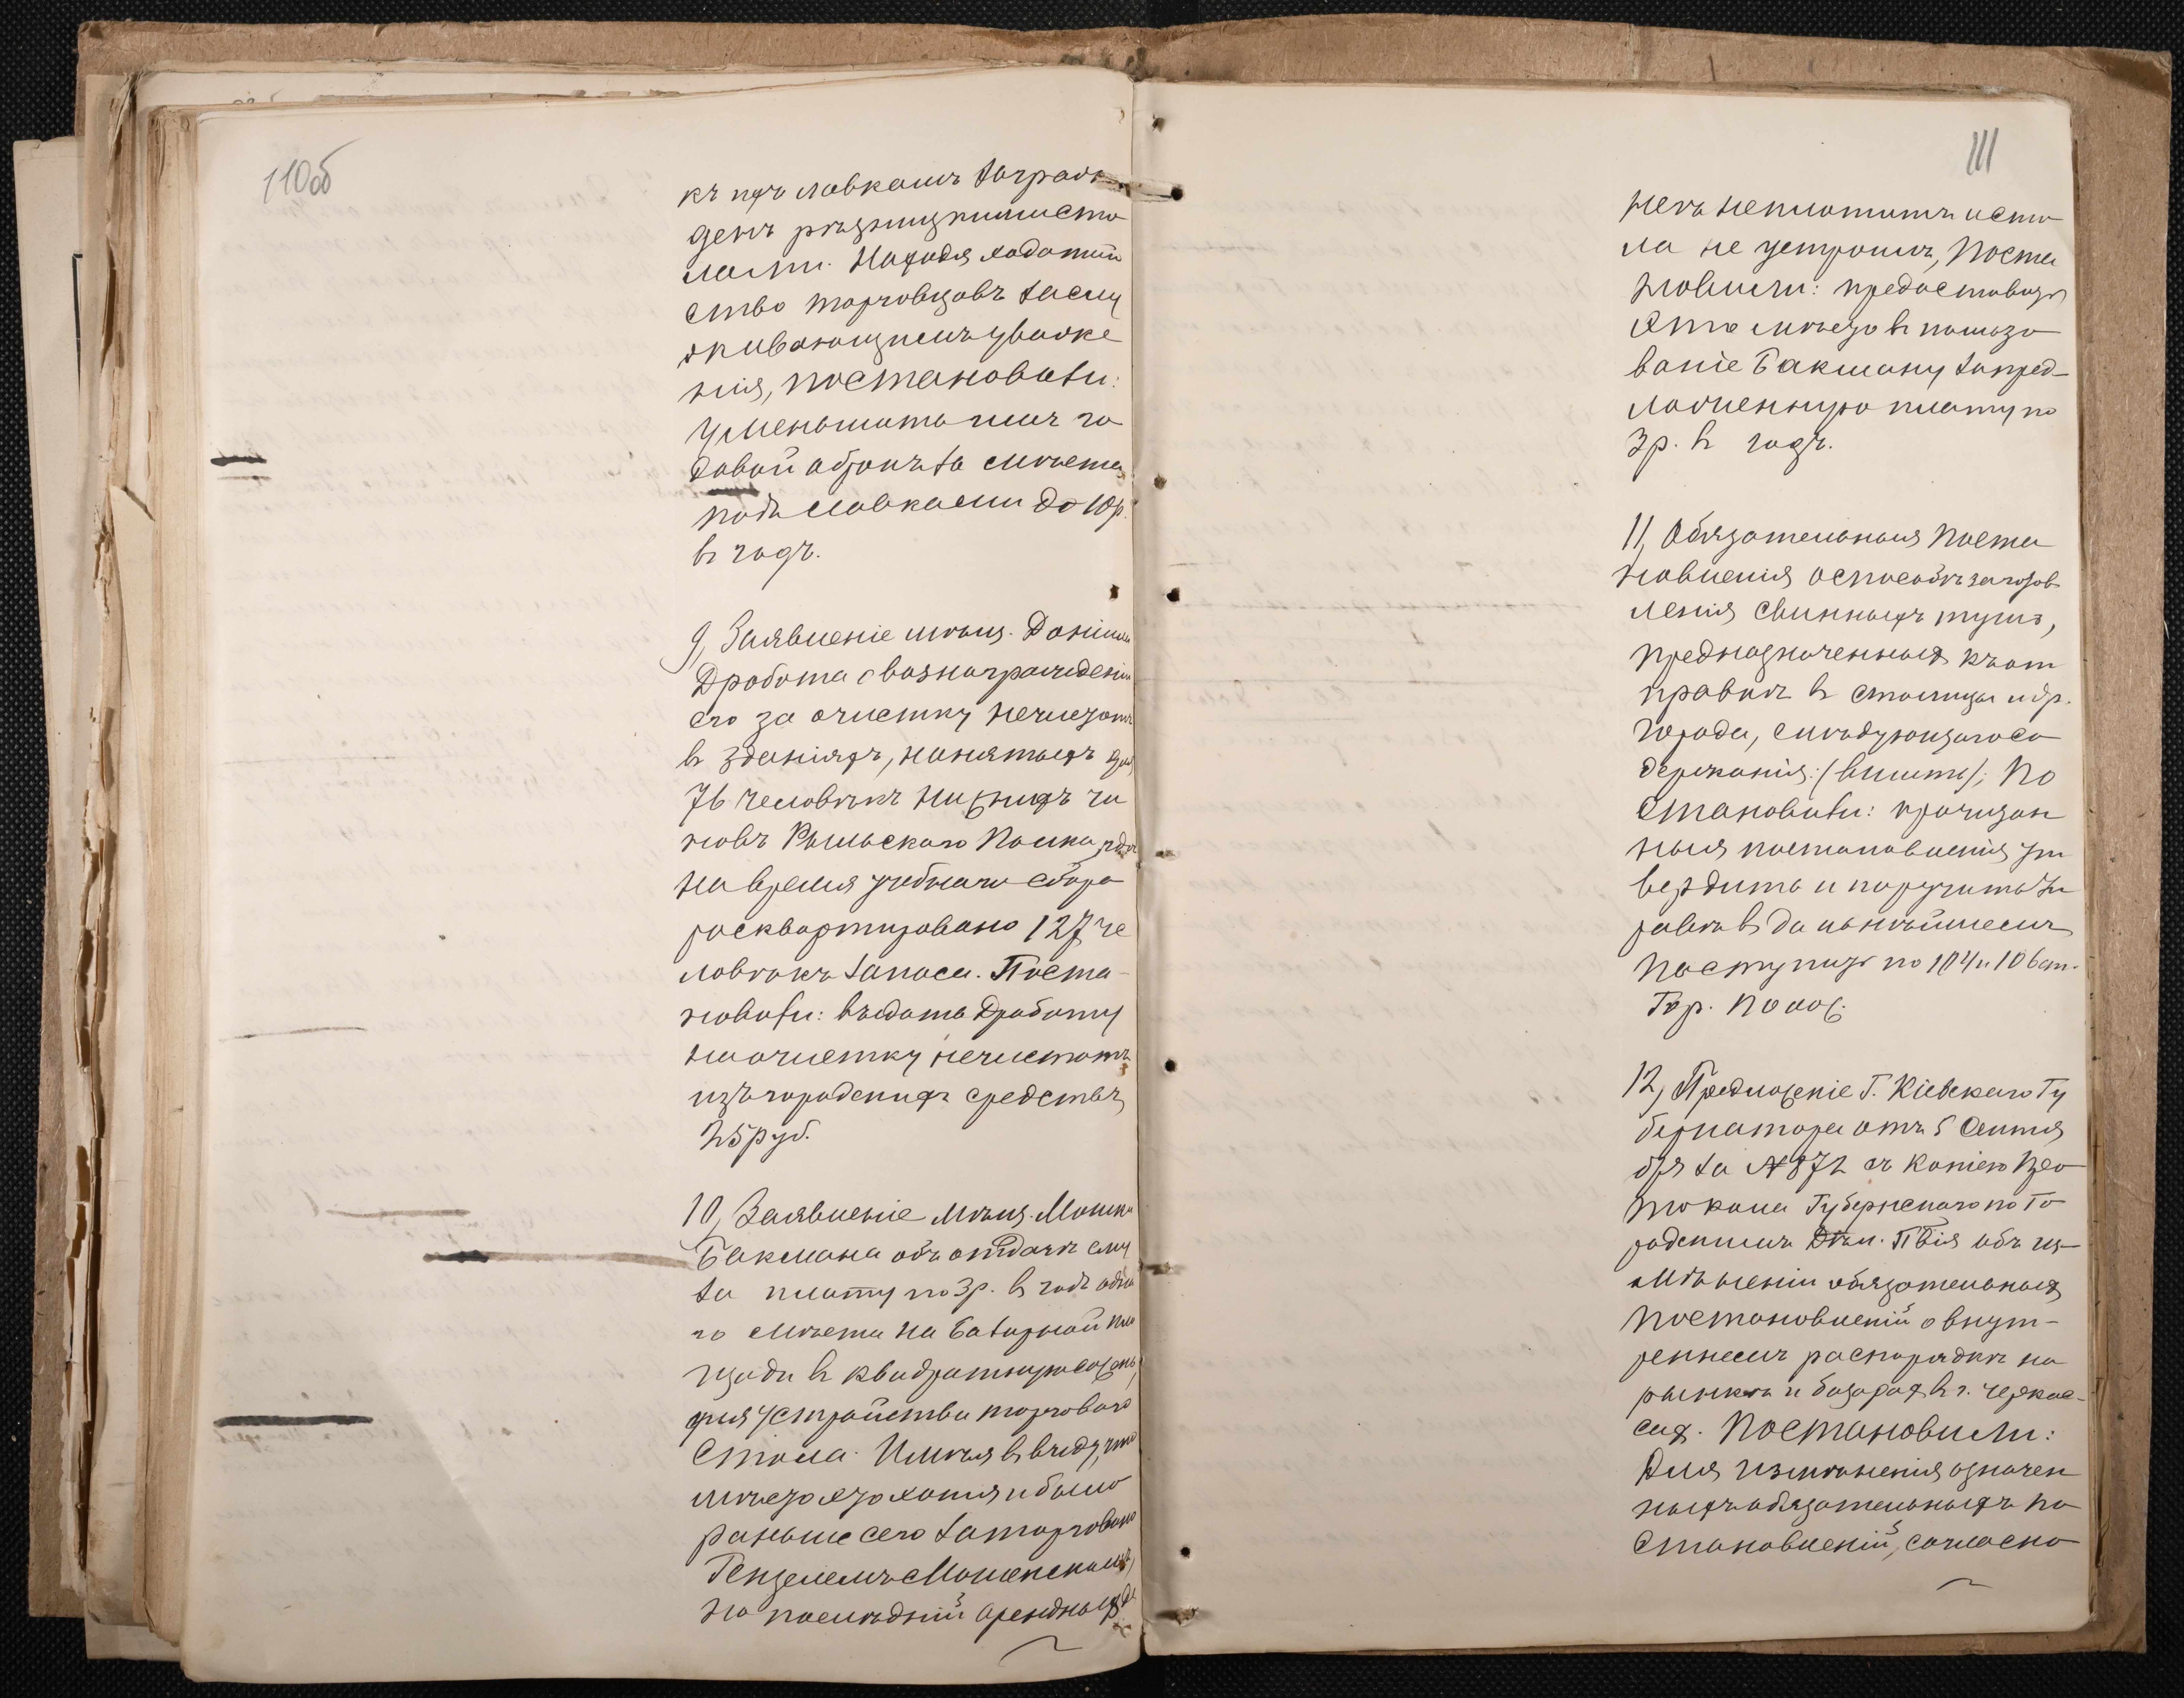 110об
къ ихъ лавкамъ заграж
денъ рѣзницкими сто
лами. Находя ходатай
ство торговцовъ заслу
живающимъ уваже
нія, постановили:
Уменьшить имъ го
довой оброкъ за мѣста
подъ лавками до 10 р.
въ годъ.
9, Заявленіе мѣщ. Даніила
Дробота о вознагражденіи
его за очистку нечистотъ
въ зданіяхъ, нанятыхъ для
76 человѣкъ нижнихъ чи
новъ Рыльскаго Полка, гдѣ
на время учебнаго сбора
расквартировано 127 че
ловѣкъ запаса. Поста-
новили: выдать Дроботу
на очистку нечистотъ
изъ городскихъ средствъ
25 руб.
10, Заявленіе мѣщ. Мошка
Бакмана объ отдачѣ ему
за плату по 3 р. въ годъ одно
го мѣста на Базарной пло
щади въ квадратную сажень,
для устройства торговаго
стола. Имѣя въ виду, что
мѣсто это хотя и было
раньше сего заторговано
но послѣдній арендныхъ де
111
негъ не платитъ и сто
ла не устроилъ, Поста
новили: предоставить
это мѣсто въ пользо
ваніе Бакману за пред-
ложенную плату по
3 р. въ годъ.
11, Обязательныя Поста
новленія о способѣ заготов
ленія свинныхъ тушъ,
предназначенныхъ къ от
правкѣ въ столицы и др.
города, слѣдующаго со
держанія: (вписать); По
становили: прочитан
ныя постановленія ут
вердить и поручить Уп
равѣ въ дальнѣйшемъ
поступить по 104 и 106 ст.
Гор. Полож.
12, Предложеніе Г. Кіевскаго Гу
бернатора отъ 5 Сентя
бря за № 872 съ копіею про
токола Губернскаго по Го
родскимъ Дѣл. П-вія объ из-
мѣненіи обязательныхъ
постановленій о внут-
реннемъ распорядкѣ на
рынкѣ и базарахъ въ г. Черкас-
сахъ. Постановили:
Для измѣненія означен
ныхъ обязательныхъ по
становленій, согласно